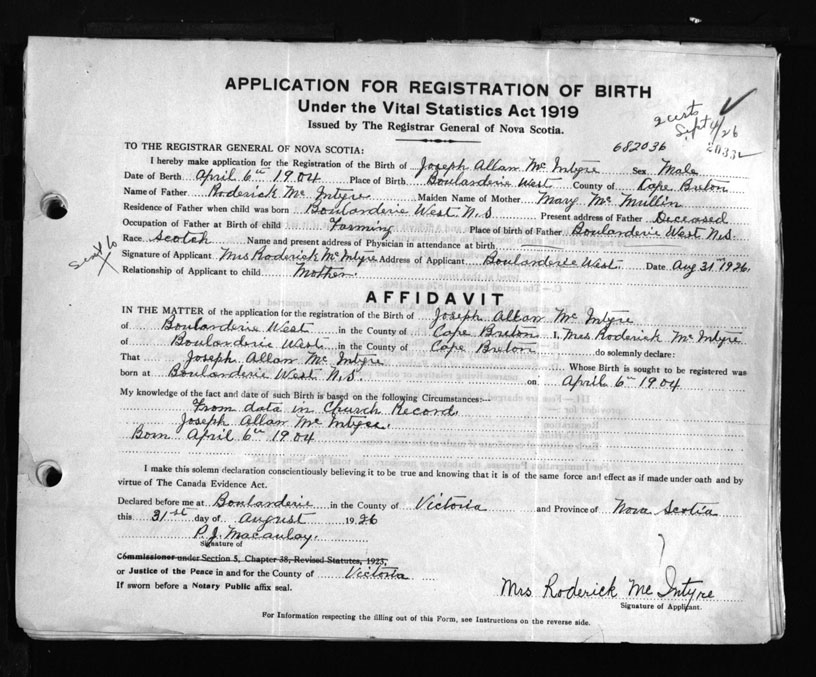 APPLICATION FOR REGISTRATION OF BIRTH
Under the Vital Statistics Act 1919
Issued by The Registrar General of Nova Scotia.
2 certs
Sept 4/26
TO THE REGISTRAR GENERAL OF NOVA SCOTIA: 682036
I hereby make application for the Registration of the Birth of Joseph Allan Mc Intyre Sex Male
Date of Birth April 6th 1904 Place of Birth Boulanderie West County of Cape Breton
Name of Father Roderick Mc Intyre Maiden Name of Mother Mary Mc Mullin
Residence of Father when child was born Boulanderie West N.S Present address of Father Deceased
Occupation of Father at Birth of child Farming Place of birth of Father Boulanderie West N.S.
Race Scotch Name and present address of Physician in attendance at birth
Signature of Applicant Mrs Roderick Mc Intyre Address of Applicant Boulanderie West. Date Aug 31st 1926.
Relationship of Applicant to child Mother.
AFFIDAVIT
IN THE MATTER of the application for the registration of the Birth of Joseph Allan Mc Intyre
of Boulanderie West in the County of Cape Breton I, Mrs Roderick Mc Intyre
of Boulanderie West in the County of Cape Breton do solemnly declare:
That Joseph Allan Mc Intyre Whose Birth is sought to be registered was
born at Boulanderie West N.S. on April 6th 1904
My knowledge of the fact and date of such Birth is based on the following Circumstances:—
From data in Church Record.
Joseph Allan Mc Intyre.
Born April 6th 1904
I make this solemn declaration conscientiously believing it to be true and knowing that it is of the same force and effect as if made under oath and by
virtue of The Canada Evidence Act.
Declared before me at Boulanderie in the County of Victoria and Province of Nova Scotia
this 31st day of August 1926
P. J. Macaulay.
Signature of
Commissioner under Section 5, Chapter 38, Revised Statutes, 1923,
or Justice of the Peace in and for the County of Victoria
If sworn before a Notary Public affix seal.
Mrs Roderick Mc Intyre
Signature of Applicant.
For Information respecting the filling out of this Form, see Instructions on the reverse side.